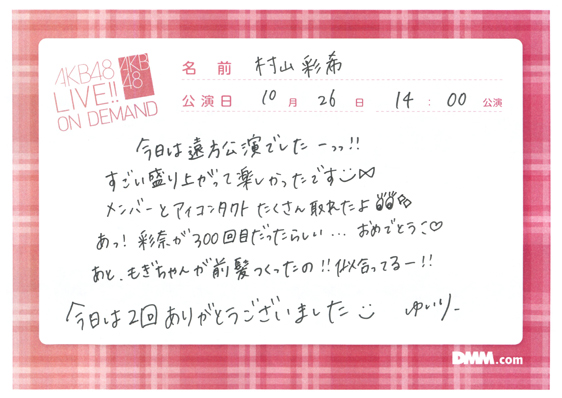 AKB48
LIVE!!
ON DEMAND
AKB
48
名前 村山彩希
公演日 10月26日 14:00公演
今日は遠方公演でしたーっっ!!
すごい盛り上がって楽しかったです
メンバーとアイコンタクトたくさん取れたよ
あっ!彩奈が300回目だったらしい…おめでとう♡
あと、もぎちゃんが前髪つくったの!!似合ってるー!!
今日は2回ありがとうございました ゆいりー
DMM.com